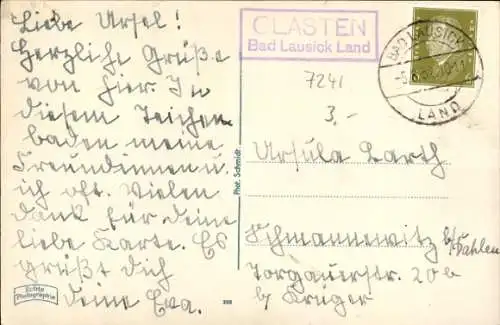 Liebe Ursel!
Herzliche Grüße
von hier. In
diesem Teichen
baden meine
Freundinnen u.
ich oft. Vielen
dank für deine
liebe Karte. Es
grüßt dich
deine Eva.
Echte
Photographie
GLASTEN
Bad Lausick Land
7241
3,-
BAD LAUSICK
LAND
Phot. Schmidt.
Ursula Barth
Schmannewitz b/Dahlen
Torgauerstr. 20b
b/ Krüger